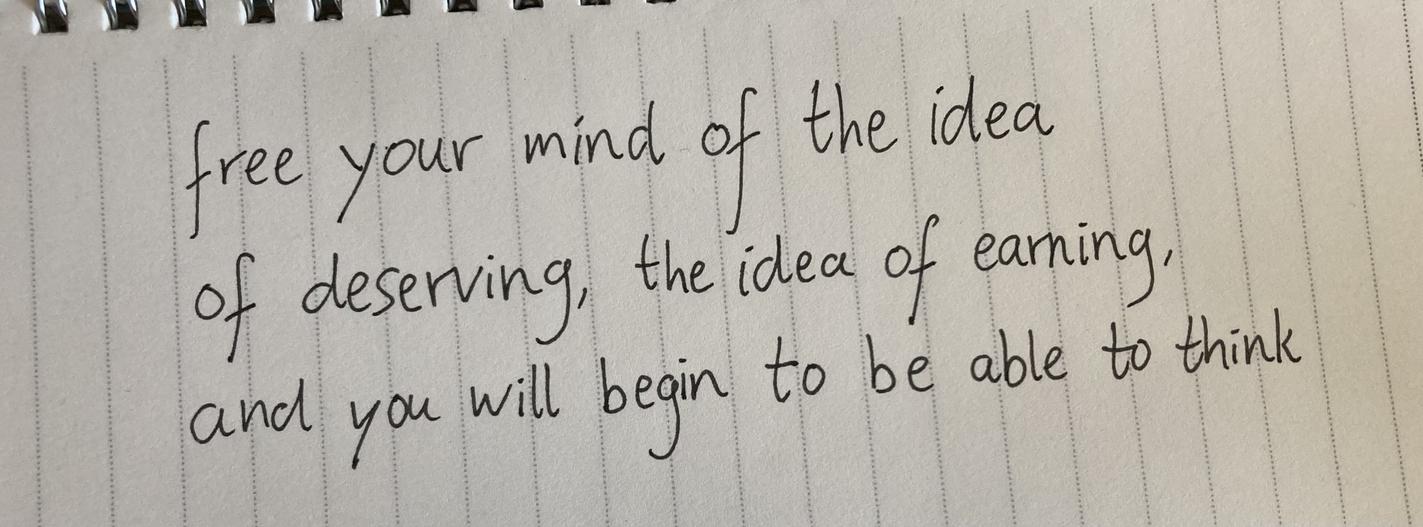 free your mind of the idea
of deserving, the idea of earning,
and you will begin to be able to think